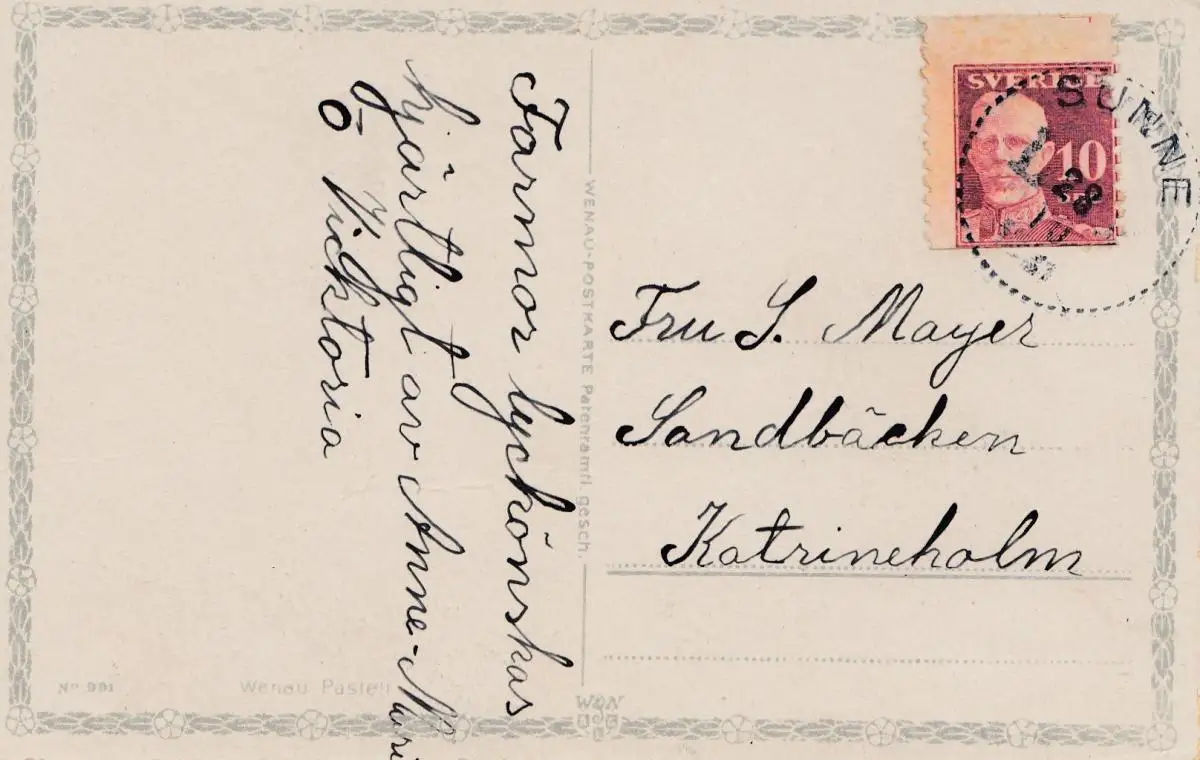 Farmor lyckönskas
hjärtligt av Anne-Mari
o Vicktoria
WENAU-POSTKARTE Patentamtl. gesch.
SVERIGE
10
SUNNE
28
Fru S. Mayer
Sandbäcken
Katrineholm
No 991
Wenau Pastell
W&N